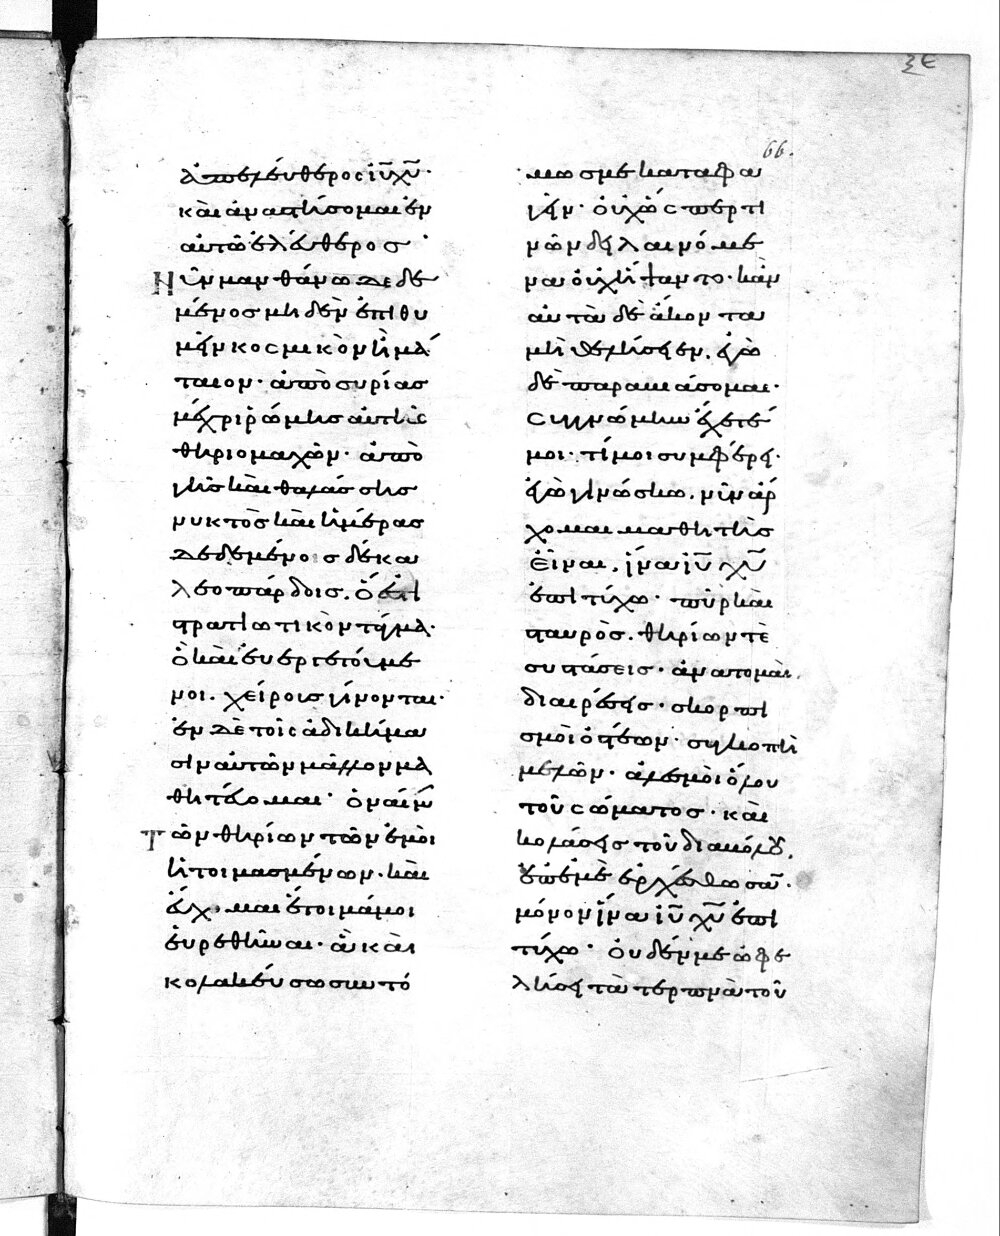 ξε
66.
ἀπελεύθερος ἰῦ χῦ·
καὶ ἀναστήσομαι ἐν
αὐτῶ ἐλεύθερος·
Νῦν μανθάνω δεδε
μένος μηδὲν ἐπιθυ
μεῖν κοσμικὸν ἢ μά
ταιον· ἀπὸ συρίας
μέχρι ῥώμης αὐτῆς
θηριομαχῶν· ἀπὸ
γῆς καὶ θαλάσσης
νυκτὸς καὶ ἡμέρας
δεδεμένος δέκα
λεοπάρδοις. ὅ ἐστι
στρατιωτικὸν τάγμα·
ὃ καὶ εὐεργετούμε
νοι. χείροις γίνονται·
ἐν δὲ τοῖς ἀδικήμα
σιν αὐτῶν μᾶλλον μα
θητεύομαι· ὀναίμην
τῶν θηρίων τῶν ἐμοὶ
ἡτοιμασμένων· καὶ
εὔχομαι ἕτοιμά μοι
εὑρεθῆναι· ἃ καὶ
κολακεύσω συντό
μως με καταφα
γεῖν· οὐχ ὥσπερ τι
νῶν δειλαινόμε
να οὐχ ἥψαντο· κἂν
αὐτὰ δὲ ἄκοντα
μὴ θελήσειεν. ἐγὼ
δὲ παραβιάσομαι·
συγγνώμην ἔχετέ
μοι· τί μοι συμφέρει·
ἐγὼ γινώσκω. νῦν ἄρ
χομαι μαθητὴς
εἶναι. ἵνα ἰῦ χῦ
ἐπιτύχω· πῦρ καὶ
σταυρὸς. θηρίων τὲ
συστάσεις· ἀνατομαὶ.
διαιρέσεις· σκορπι
σμοὶ ὀστέων· συγκοπὴ
μελῶν· ἀλεσμοὶ ὅλου
τοῦ σώματος· καὶ
κολάσεις τοῦ διαβόλου.
ἐπ' ἐμὲ ἐρχέσθωσαν·
μόνον ἵνα ἰῦ χῦ ἐπι
τύχω· οὐδέν με ὠφε
λήσει τὰ τερπνὰ τοῦ